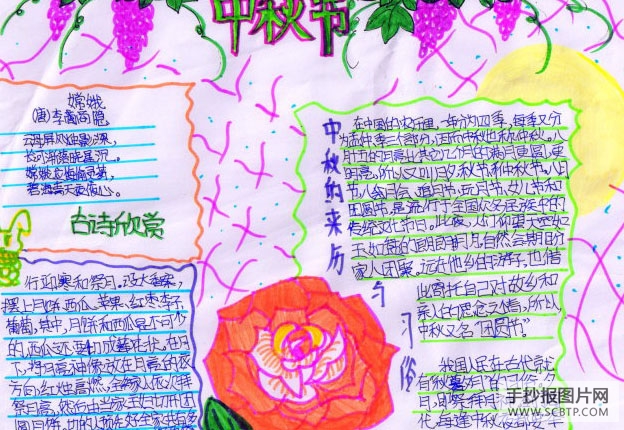 中秋节
嫦娥
(唐)李商隐
云母屏风烛影深,
长河渐落晓星沉。
嫦娥应悔偷灵药,
碧海青天夜夜心。
古诗欣赏
行迎寒和祭月。设大香案,
摆上月饼、西瓜、苹果、红枣、李子、
葡萄,其中,月饼和西瓜是不可少
的,西瓜还要切成莲花状。在月
下,将月亮神像放在月亮的那
方向,红烛高燃,全家人依次拜
祭月亮,然后由当家主妇切开团
圆月饼。切的人预先好全家共有多
中秋的来历
与习俗
在中国的农历里,一年分为四季,每季又分
为孟仲季三个部分,因而中秋也称仲秋。八
月十五的月亮比其它几个月的满月更圆,更
明亮,所以又叫月夕,秋节,仲秋节,八月
节,八月会,追月节,玩月节,女儿节和
团圆节,是流行于全国众多民族中的
传统文化节日。此夜,人们仰望天空如
玉如盘的朗朗明月,自然会期盼
家人团聚,远在他乡的游子,也借
此寄托自己对故乡和
亲人的思念之情,所以,
中秋又名“团员节。”
我国人民在古代就
有秋暮夕月的习俗。夕
月,即祭拜月神。
代,每逢中秋夜都要举
手抄报图片网
WWW.SCBTP.COM